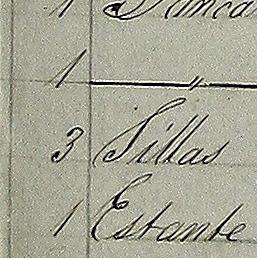 1
1 — "
3 Sillas
1 Estante